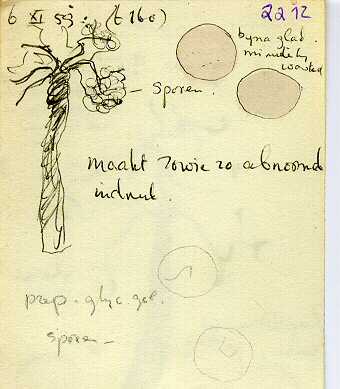 6 XI 53. (t 160)
2212
byna glad.
minutely
warted
— Sporen.
maakt zowie zo abnormaal
indruk.
prep. glyc. gel.
sporen —